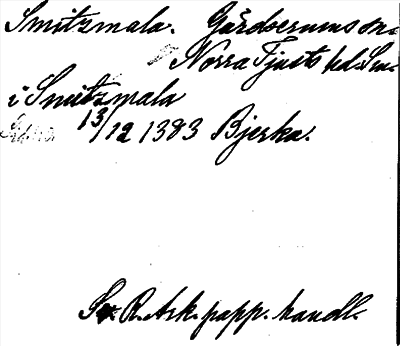 Smitzmala. Gärdserums sn.
Norra Tjusts hd. Sm.
i Smitzmala
13/12 1383 Bjerka.
Sv. R. Ark. papp. handl.